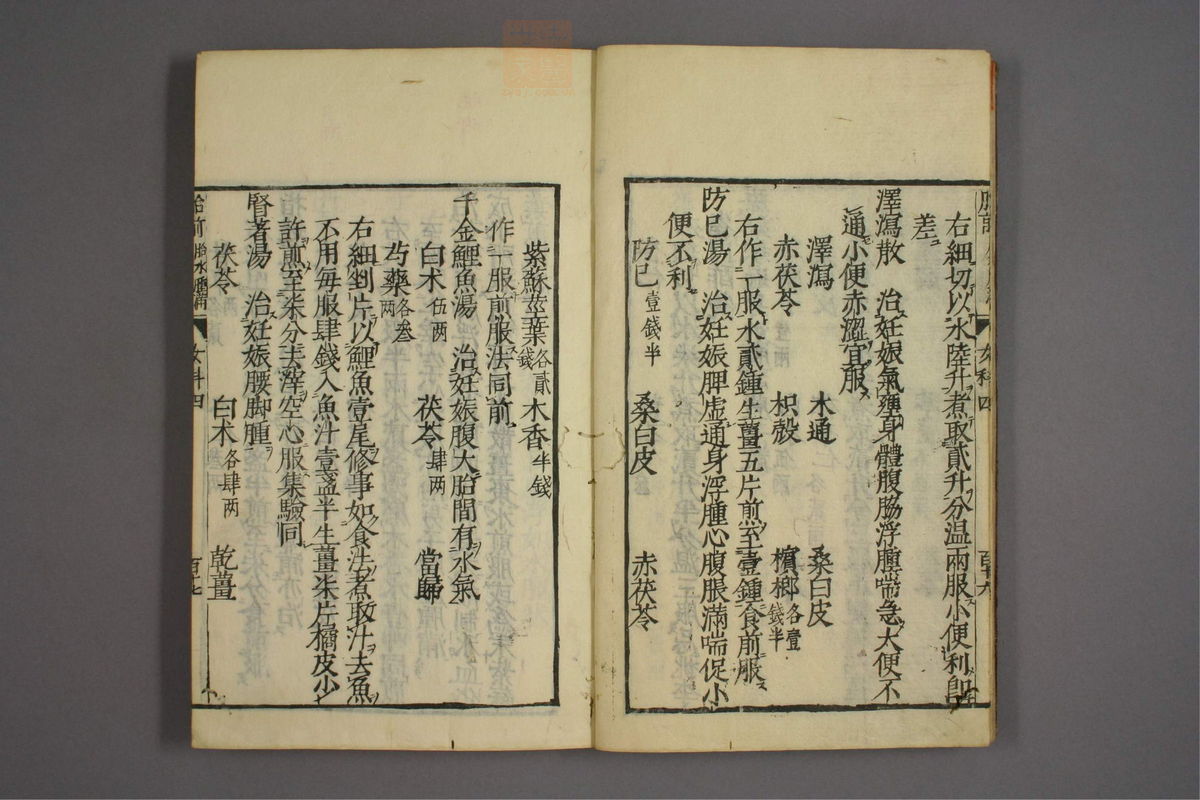 右細切以水陸升煮取貳升分温兩服小便利即
差
澤瀉散　治妊娠氣壅身體腹脇浮腫喘急大便不
通小便赤澀宜服
澤瀉　木通　桑白皮
赤茯苓　枳殼　檳榔各壹錢半
右作一服水貳鍾生薑五片煎至壹鍾食前服
防已湯　治妊娠脾虚通身浮腫心腹脹滿喘促小
便不利
防已壹錢半　桑白皮　赤茯苓
紫蘇莖葉各貳錢　木香半錢
作一服煎服法同前
千金鯉魚湯　治妊娠腹大胎間有水氣
白术伍两　茯苓肆两　當歸
芍藥各叁两
右細剉片以鯉魚壹尾修事如食法煮取汁去魚
不用每服肆錢入魚汁壹盞半生薑柒片橘皮少
許煎至柒分去滓空心服集驗同
腎著湯　治妊娠腰脚腫
茯苓　白术各肆两　乾薑
胎前　女科四　百七
女科四　百六